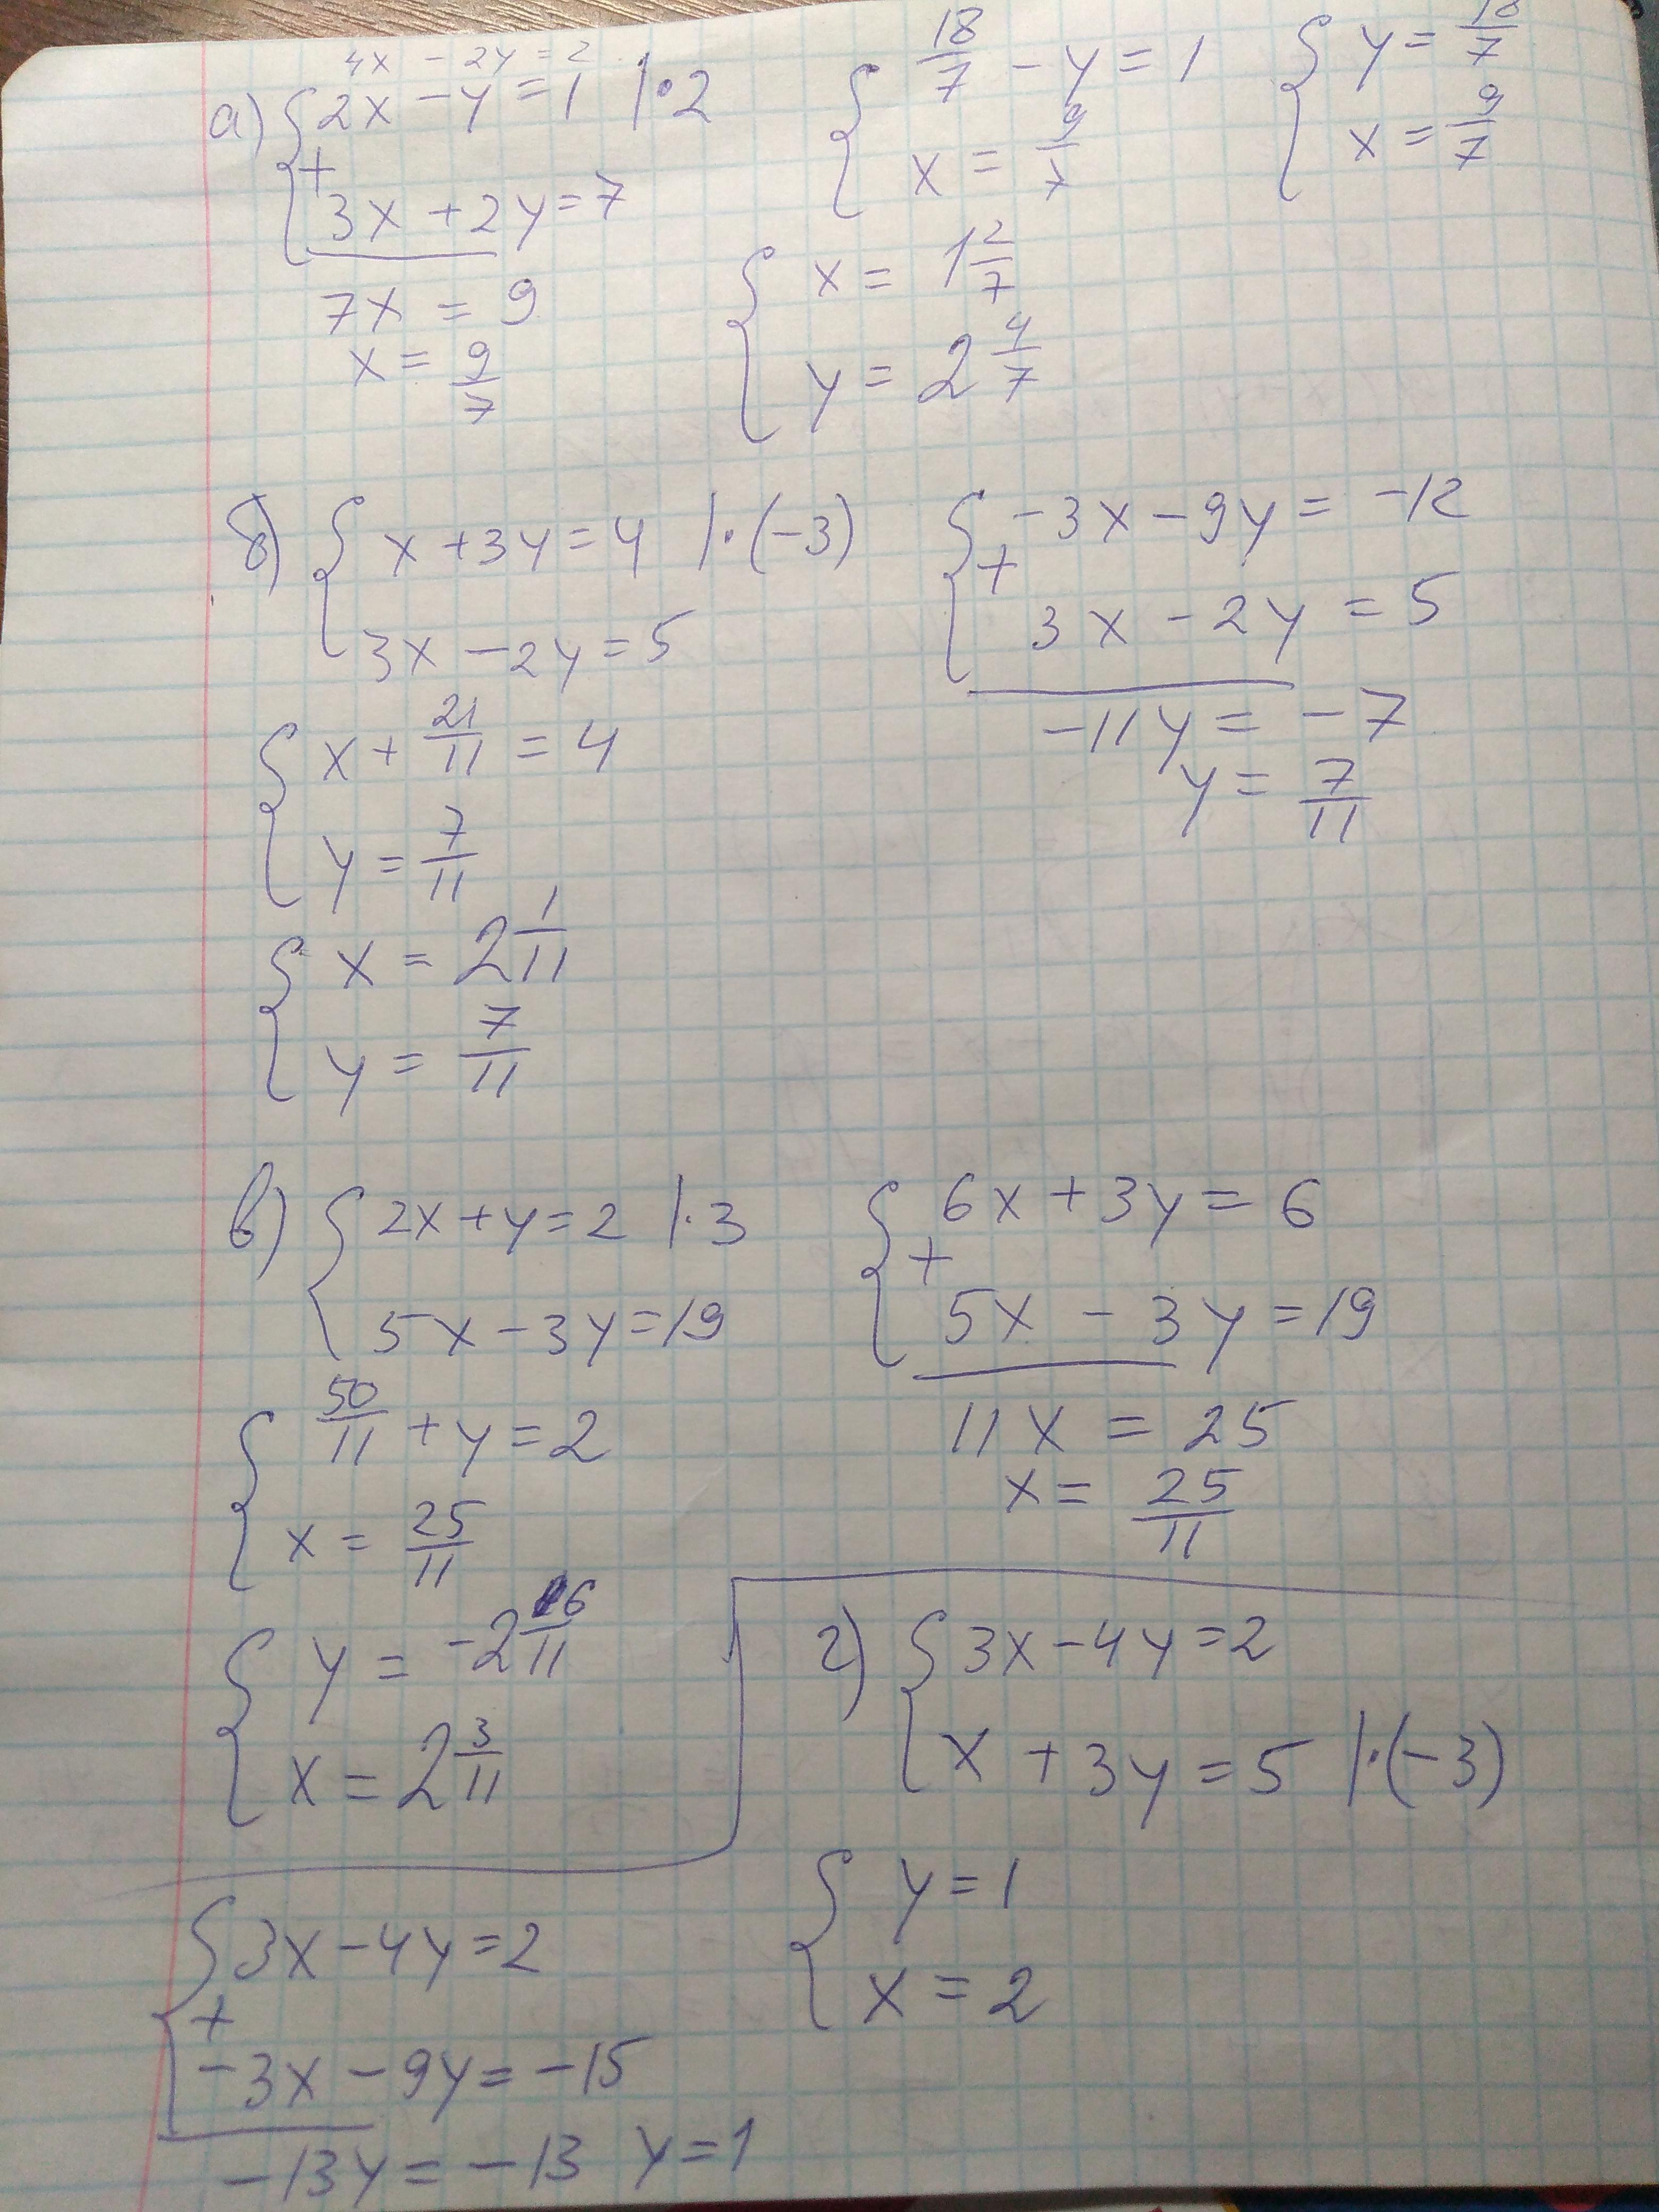 4x - 2y = 2
а) { 2x - y = 1 |·2
+
3x + 2y = 7
7x = 9
x = 9/7
{ 18/7 - y = 1
x = 9/7
{ y = 18/7
x = 9/7
{ x = 1 2/7
y = 2 4/7
б) { x + 3y = 4 |·(-3)
3x - 2y = 5
{ -3x - 9y = -12
+
3x - 2y = 5
-11y = -7
y = 7/11
{ x + 21/11 = 4
y = 7/11
{ x = 2 1/11
y = 7/11
в) { 2x + y = 2 |·3
5x - 3y = 19
{ 6x + 3y = 6
+
5x - 3y = 19
11x = 25
x = 25/11
{ 50/11 + y = 2
x = 25/11
{ y = -2 6/11
x = 2 3/11
г) { 3x - 4y = 2
x + 3y = 5 |·(-3)
{ 3x - 4y = 2
+
-3x - 9y = -15
-13y = -13 y = 1
{ y = 1
x = 2